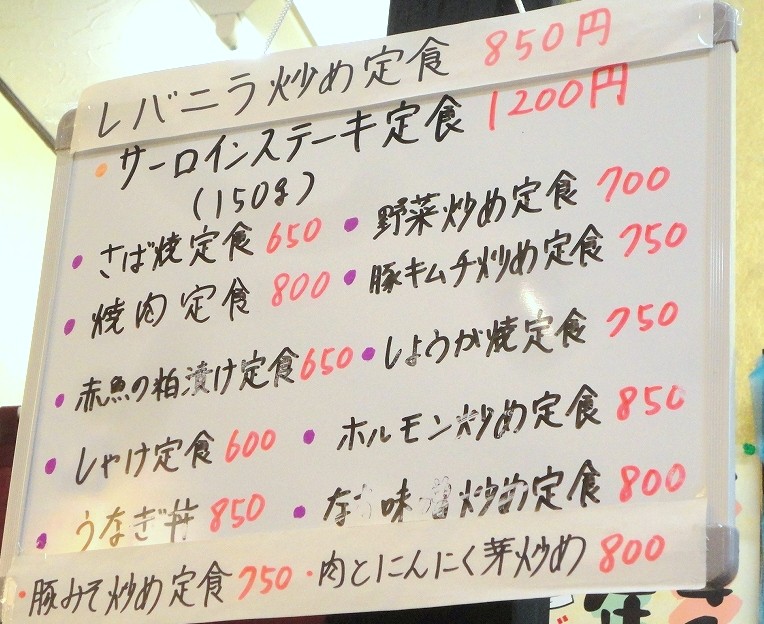 レバニラ炒め定食 850円
・サーロインステーキ定食 1200円
(150g)
・さば焼定食 650
・野菜炒め定食 700
・焼肉定食 800
・豚キムチ炒め定食 750
・赤魚の粕漬け定食 650
・しょうが焼定食 750
・しゃけ定食 600
・ホルモン炒め定食 850
・うなぎ丼 850
・な 味噌炒め定食 800
・豚みそ炒め定食 750
・肉とにんにく芽炒め 800